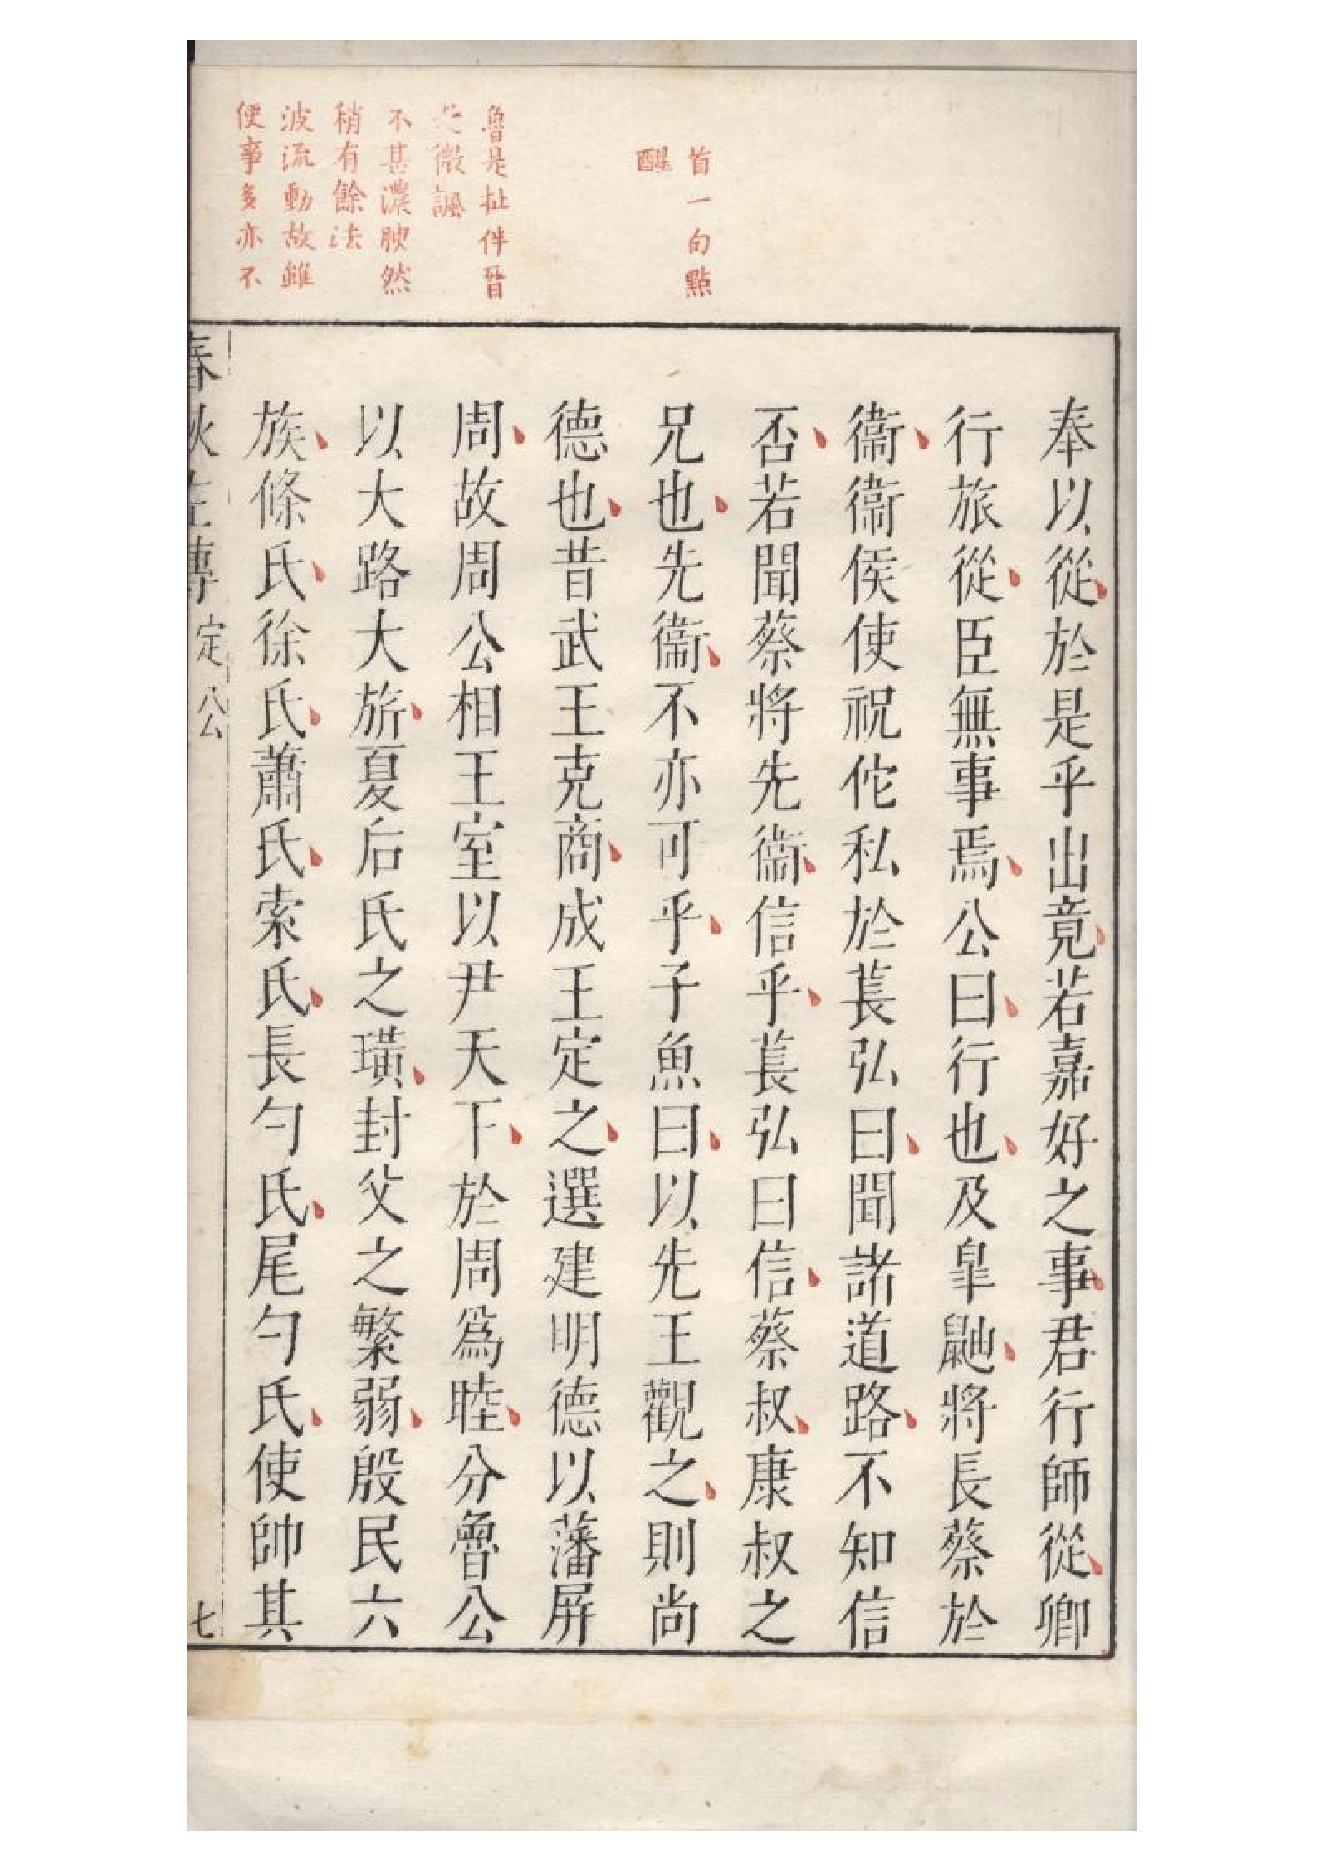 首一句點
醒
魯是扯伴晉
微諷
不甚濃腴然
稍有餘法
波流動故雖
便事多亦不
奉以從於是乎出竟若嘉好之事君行師從卿
行旅從臣無事焉公曰行也及皐鼬將長蔡於
衞衞侯使祝佗私於萇弘曰聞諸道路不知信
否若聞蔡將先衞信乎萇弘曰信蔡叔康叔之
兄也先衞不亦可乎子魚曰以先王觀之則尚
德也昔武王克商成王定之選建明德以藩屏
周故周公相王室以尹天下於周爲睦分魯公
以大路大旂夏后氏之璜封父之繁弱殷民六
族條氏徐氏蕭氏索氏長勺氏尾勺氏使帥其
春秋左傳 定公 七